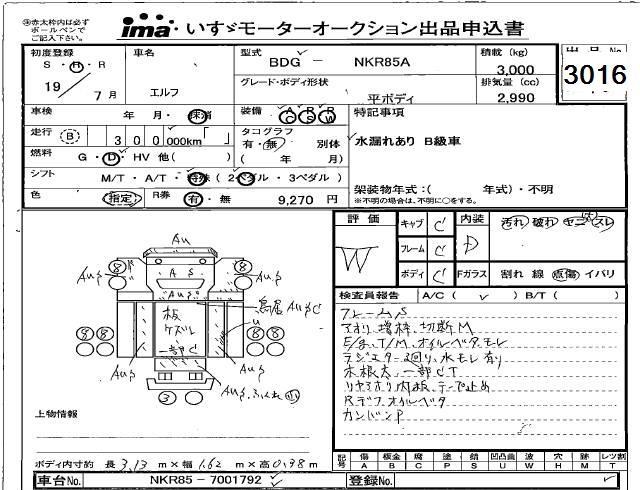 ※赤太枠内は必ず
ボールペンで
ご記入下さい。
ima いすゞモーターオークション出品申込書
初度登録
S・H・R
19 7 月
車名
エルフ
型式
BDG － NKR85A
グレード・ボディ形状
平ボディ
積載 (kg)
3,000
排気量 (cc)
2,990
出品No
3016
車検 年 月・抹消
装備 A/C PS R PW
特記事項
水漏れあり B級車
走行 B 300 000km「 」
タコグラフ
有・無 別体
( 年 月)
燃料 G・D・HV 他( )
シフト M/T・A/T・特殊 ( 2ペダル・3ペダル )
架装物年式:( 年式)・不明
※不明の場合は、不明に○をする。
色 (指定) R券 有・無 9,270 円
評価 W
キャブ C
フレーム C
ボディ C
内装 D
汚れ 破れ ヤニ スレ
Fガラス 割れ 線 点傷 イバリ
検査員報告 A/C ( ✓ ) B/T ( )
フレームS
アオリ、増枠、切断M
E/g、T/M、オイルベタ、モレ
ラジエター廻り、水モレ有り
木根太、一部CT
リヤアオリ内板、テープ止め
Rデフ、オイルベタ
カンバンP
Au
8 8
AuS AuS
AS
AuS
鳥居 AuSC
板
ケズレ
一部C
u
8 8 8 8
AuS AuS
3
上物情報
ボディ内寸約 長 3.13 m×幅 1.62 m×高 0.38 m
記号 傷A 板金B 腐C 塗P 錆S 凹凸曲U 波W 穴H 跡M レツ割T
車台No. NKR85 - 7001792
登録No.